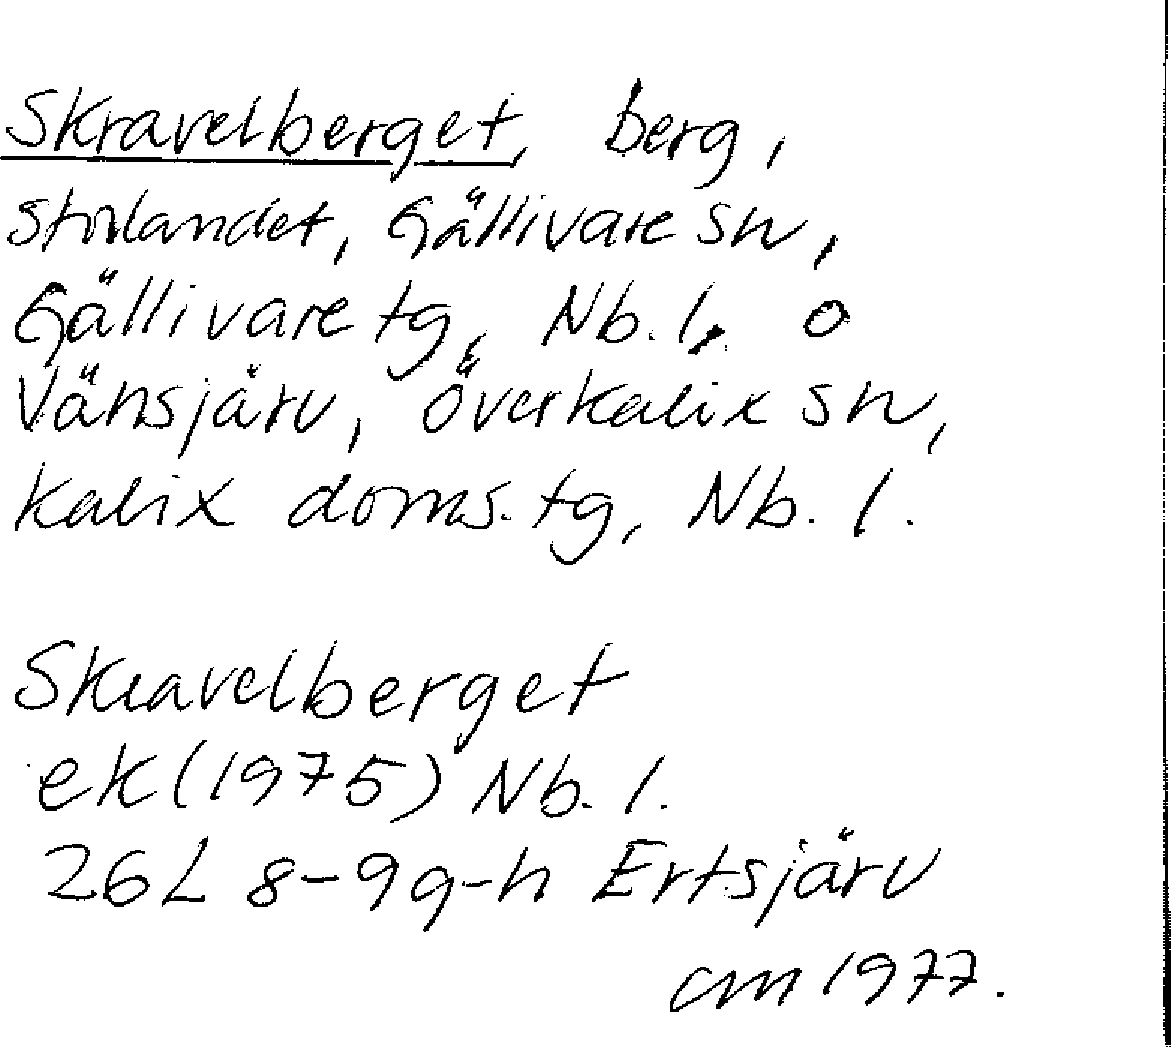 Skravelberget, berg,
Storlandet, Gällivare sn,
Gällivare tg, Nb. l, o
Vänsjärv, Överkalix sn,
Kalix doms. tg, Nb. l.
Skravelberget
ek (1975) Nb. l.
26L 8-9g-h Ertsjärv
cm 1977.